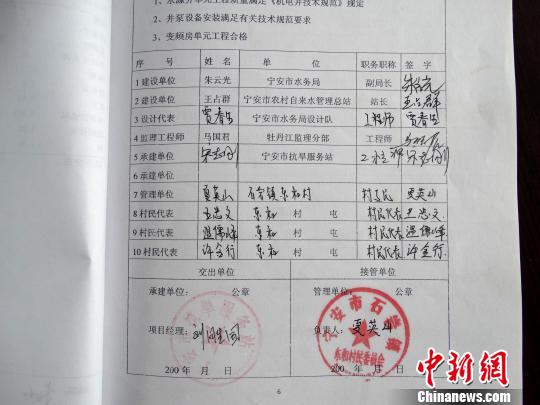 1、水源分单元工程质量满足《机电井技术规范》规定
2、井泵设备安装满足有关技术规范要求
3、变频房单元工程合格
序 号 姓 名 单 位 职务职称 签 字
1 建设单位 朱云光 宁安市水务局 副局长
2 建设单位 王占群 宁安市农村自来水管理总站 站长 王占群
3 设计代表 贾春生 宁安市水务局设计队 工程师 贾春生
4 监理工程师 马国君 牡丹江监理分部 工程师
5 承建单位 宁安市抗旱服务站
6 承建单位
7 管理单位 夏英山 石岩镇东和村 夏英山
8 村民代表 王忠文 东和 村 屯 村民代表 王忠文
9 村民代表 东和 村 屯 村民代表
10 村民代表 许金行 东和 村 屯 村民代表 许金行
交出单位 接管单位
承建单位: 公章 管理单位: 公章
项目经理: 负责人: 夏英山
宁安市石岩镇
东和村民委员会
200 年 月 日 200 年 月 日
6
中新网
Chinanews.com